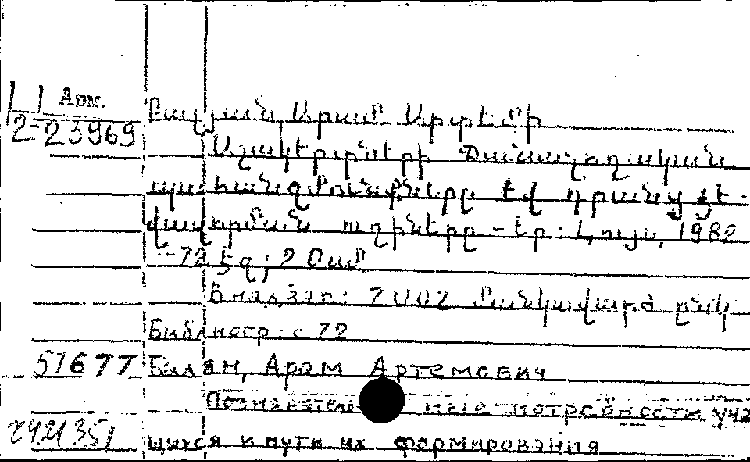 Арм.
2-23969
Բալյան Արամ Արտեմի
Աշակերտների ճանաչողական
պահանջմունքները եվ դրանց ձե-
վավորման ուղիները - Եր.: Լույս, 1982
-72 էջ; 20սմ
Библиогр. с 72
51677 Балян, Арам Артемович
Познаватель ные потребности уча
щихся и пути их формирования